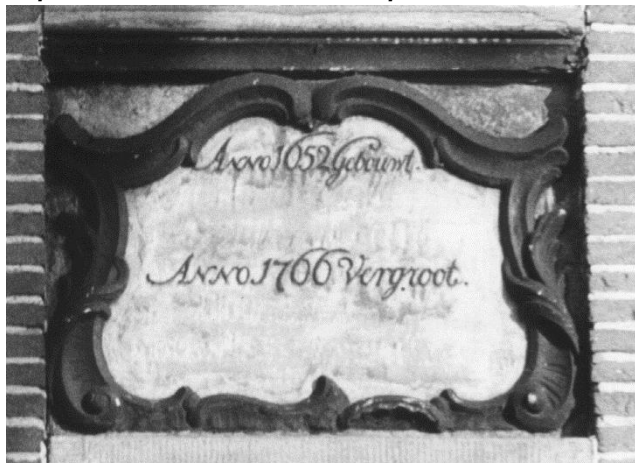 Anno 1652 Gebouwt.
Anno. 1766 Vergroot.